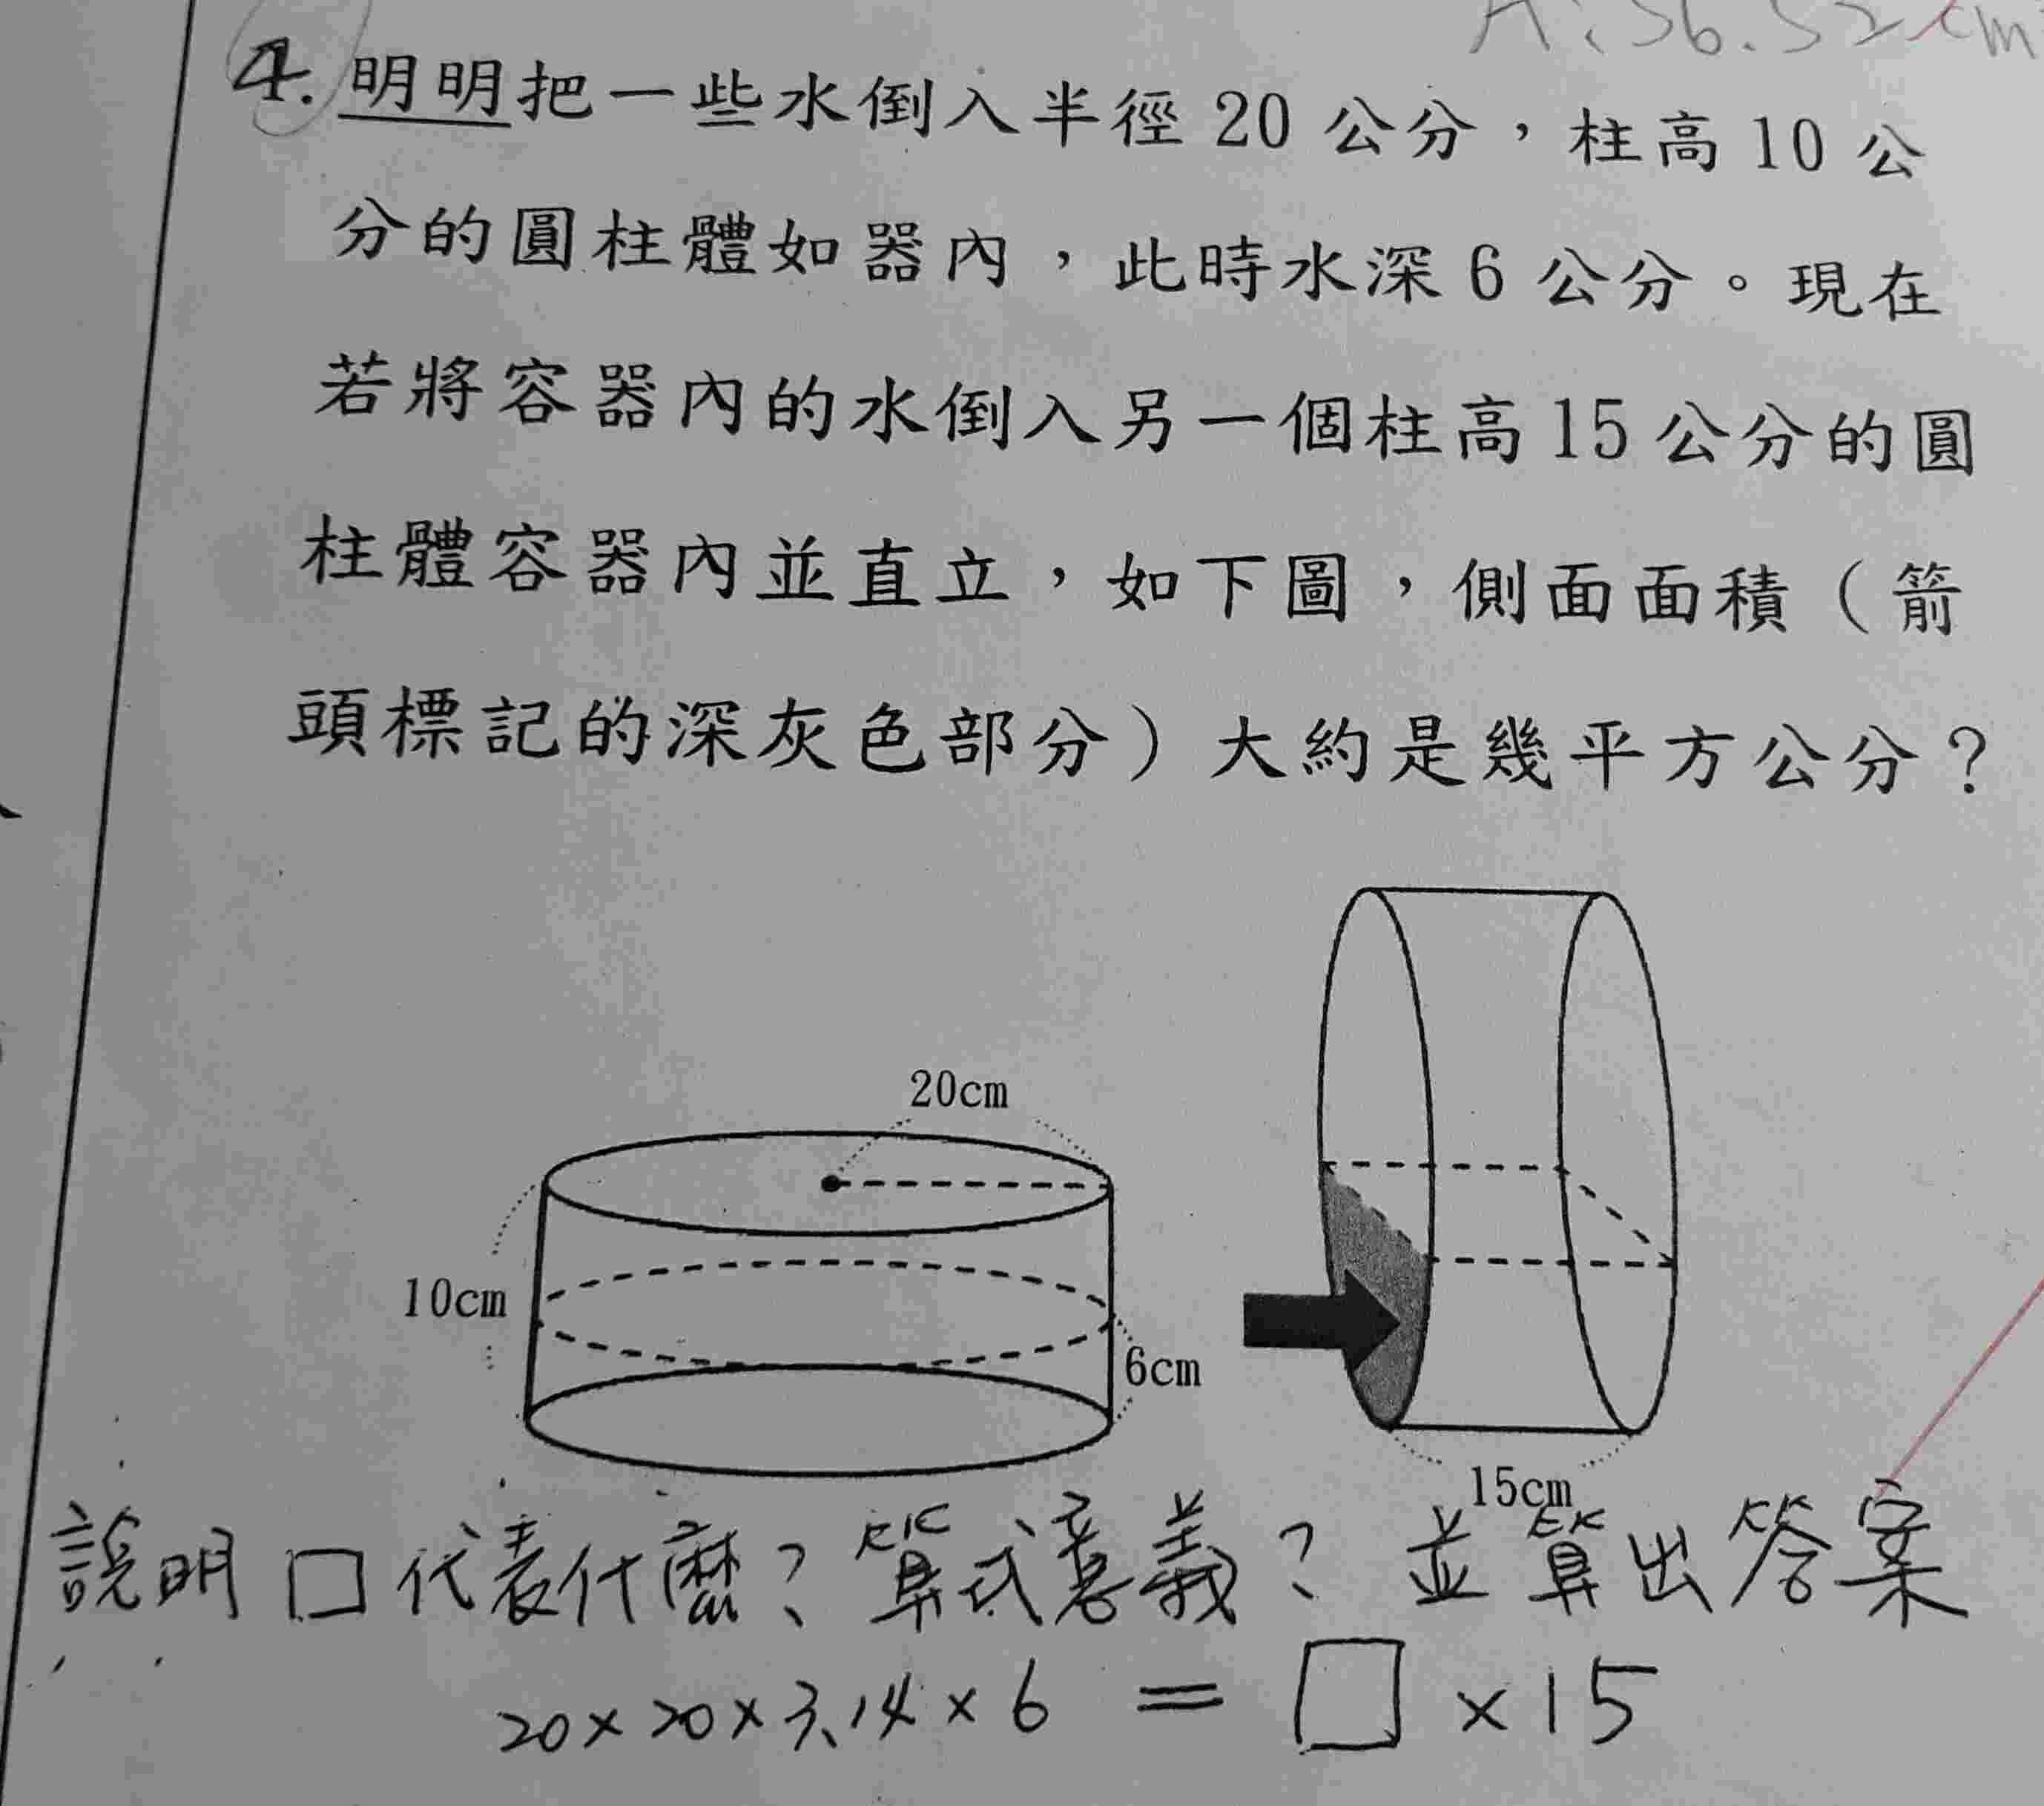 A:36.52cm
4. 明明把一些水倒入半徑 20 公分，柱高 10 公
分的圓柱體如器內，此時水深 6 公分。現在
若將容器內的水倒入另一個柱高 15 公分的圓
柱體容器內並直立，如下圖，側面面積（箭
頭標記的深灰色部分）大約是幾平方公分？
20cm
10cm
6cm
15cm
說明 □ 代表什麼？算式意義？並算出答案
20×20×3.14×6 = □×15